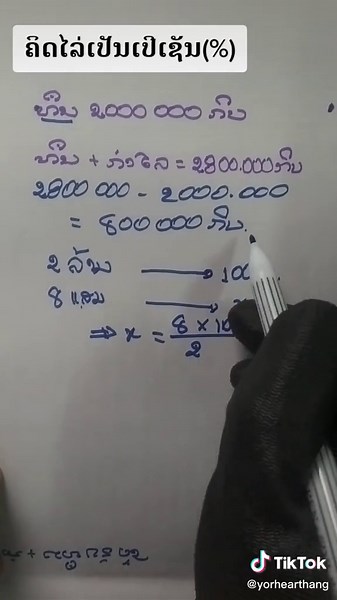 ຄິດໄລ່ເປັນເປີເຊັນ(%)
ທຶນ 2000 000 ກີບ
ທຶນ + ກຳໄລ = 2800.000 ກີບ
2800 000 - 2000.000
= 800 000 ກີບ.
2 ລ້ານ → 100
8 ແສນ →
⇒ x = 8 x 10
2
TikTok
@yorhearthang